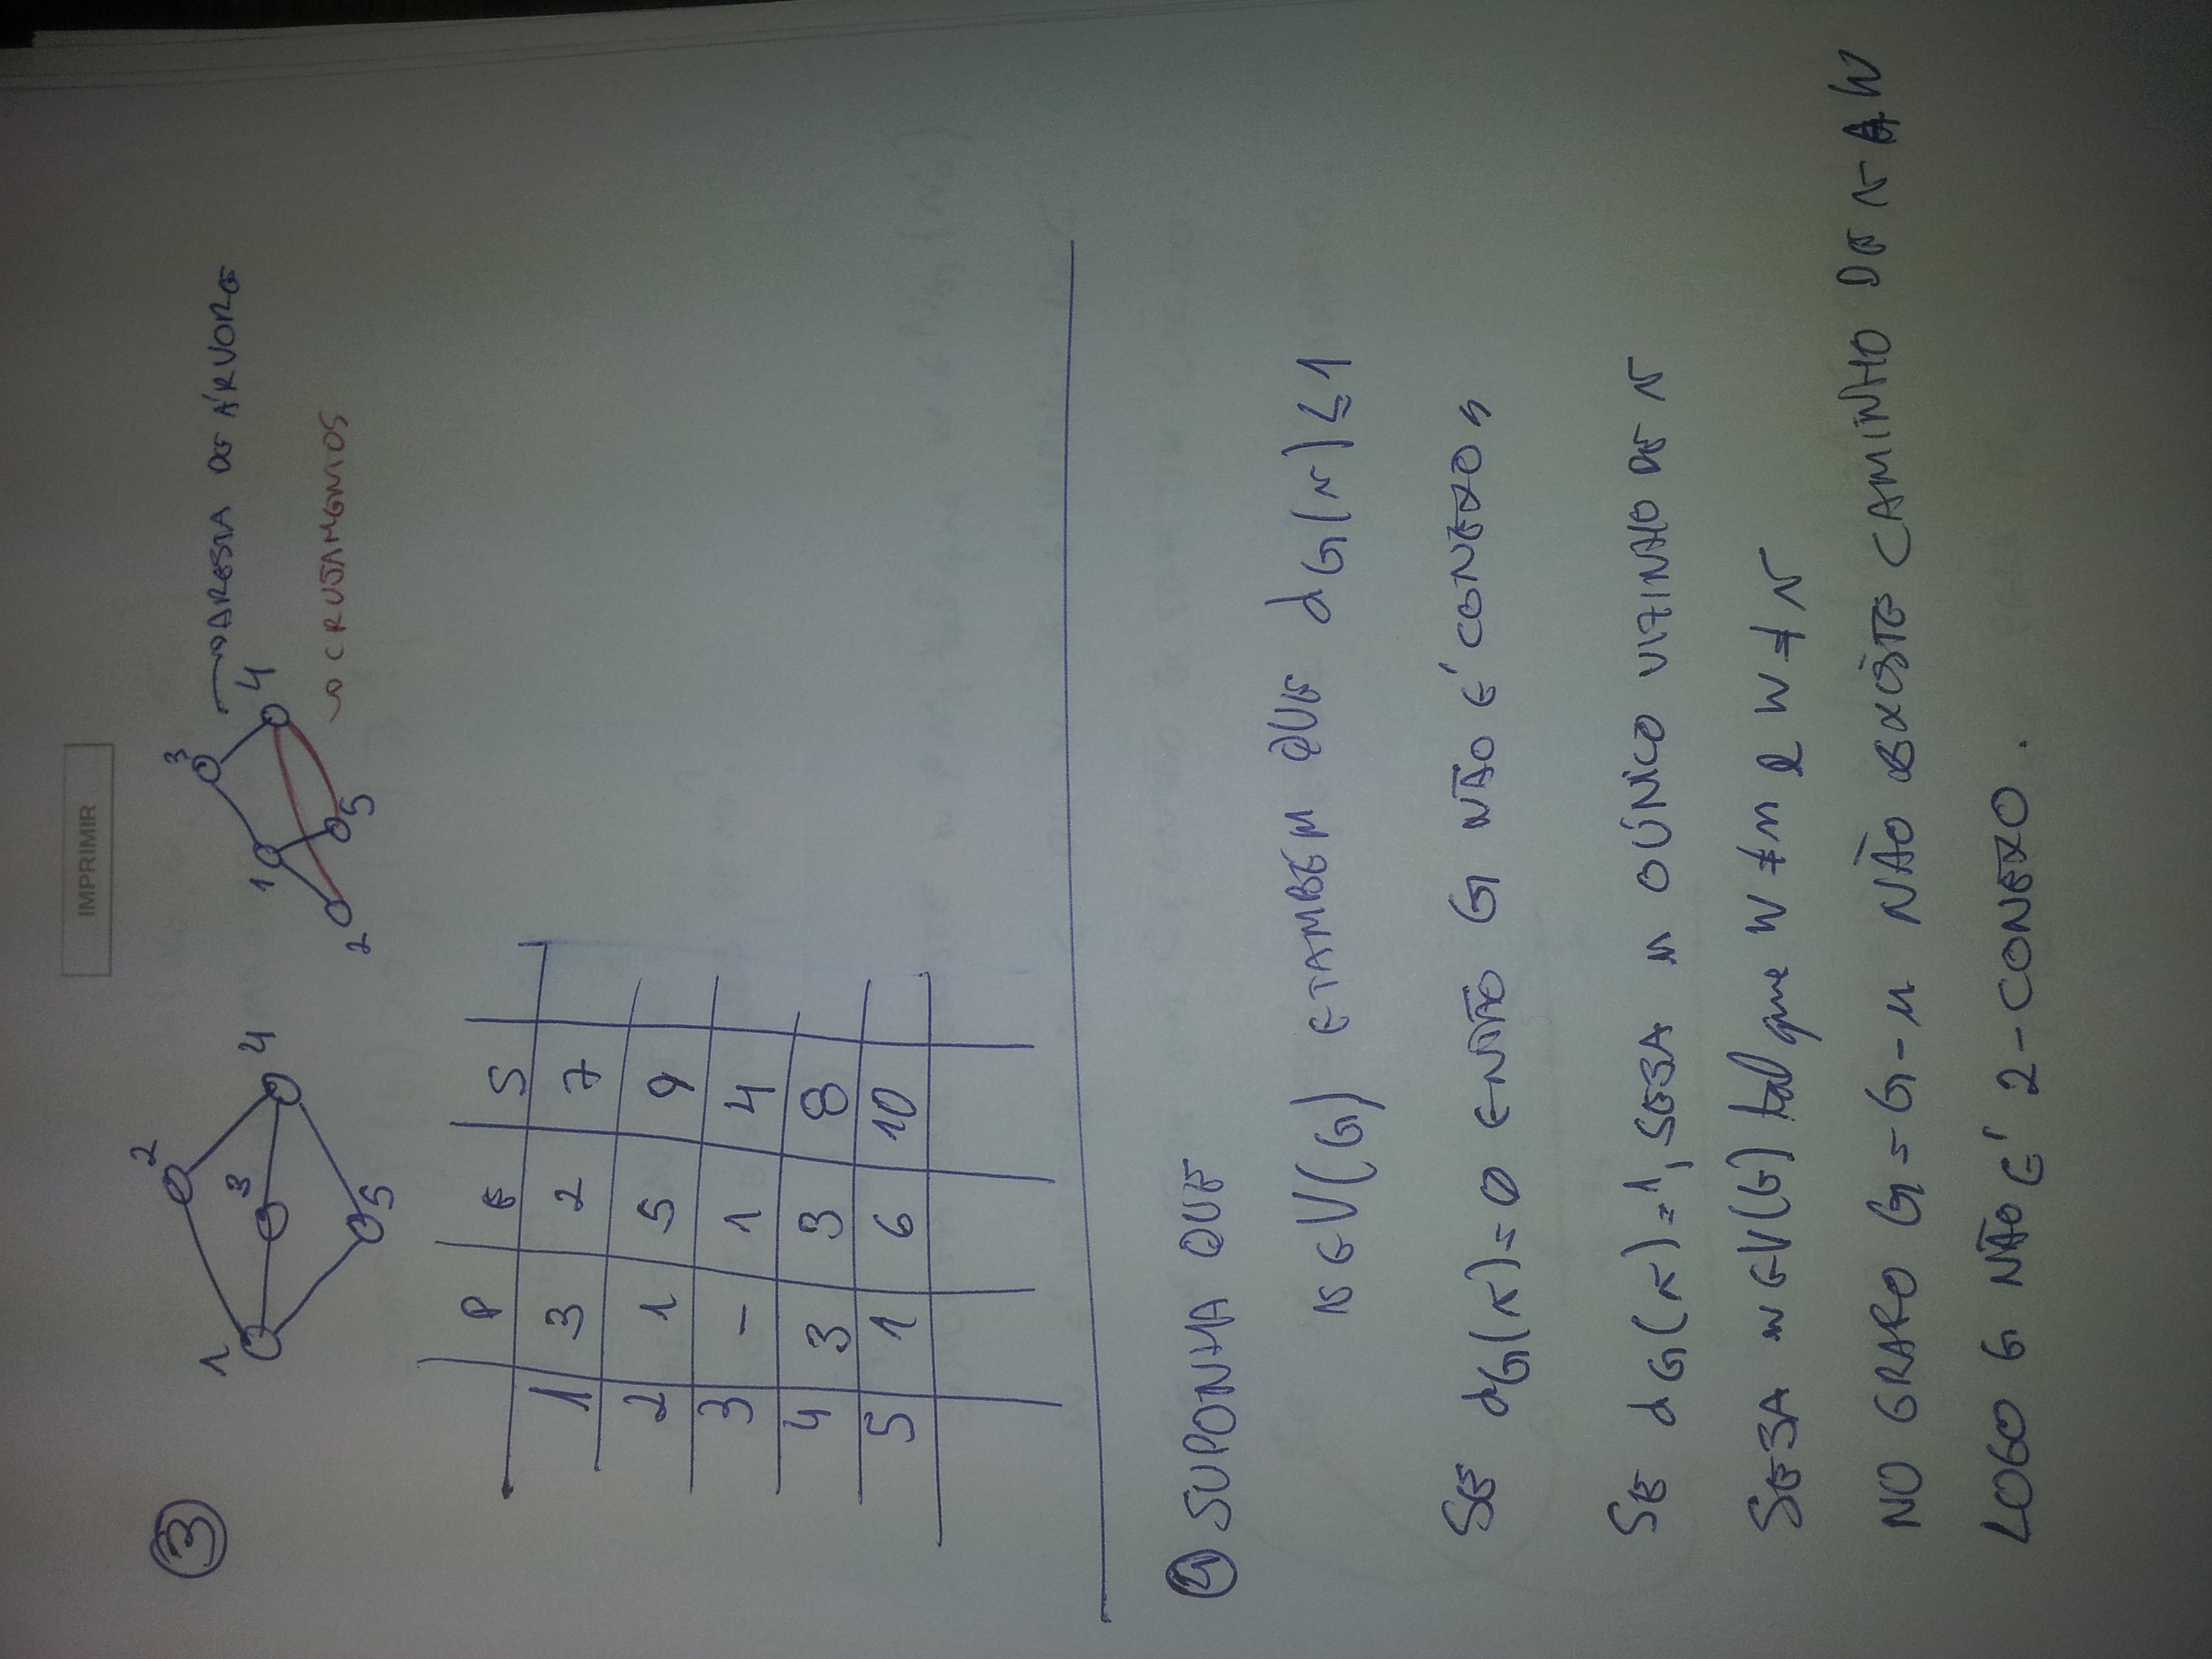 IMPRIMIR
③
1 2 3 4 5
1 2 3 4 5
ARESTA DE ÁRVORE
CRUZAMENTOS
P E S
1 3 2 7
2 1 5 9
3 - 1 4
4 3 3 8
5 1 6 10
④ SUPONHA QUE
v ∈ V(G) E TAMBÉM QUE dG(v) ≤ 1
SE dG(v) = 0 ENTÃO G NÃO É CONEXO,
SE dG(v) = 1, SEJA u O ÚNICO VIZINHO DE v
SEJA w ∈ V(G) tal que w ≠ u e w ≠ v
NO GRAFO G = G - u NÃO EXISTE CAMINHO DE v A w
LOGO G NÃO É 2-CONEXO.